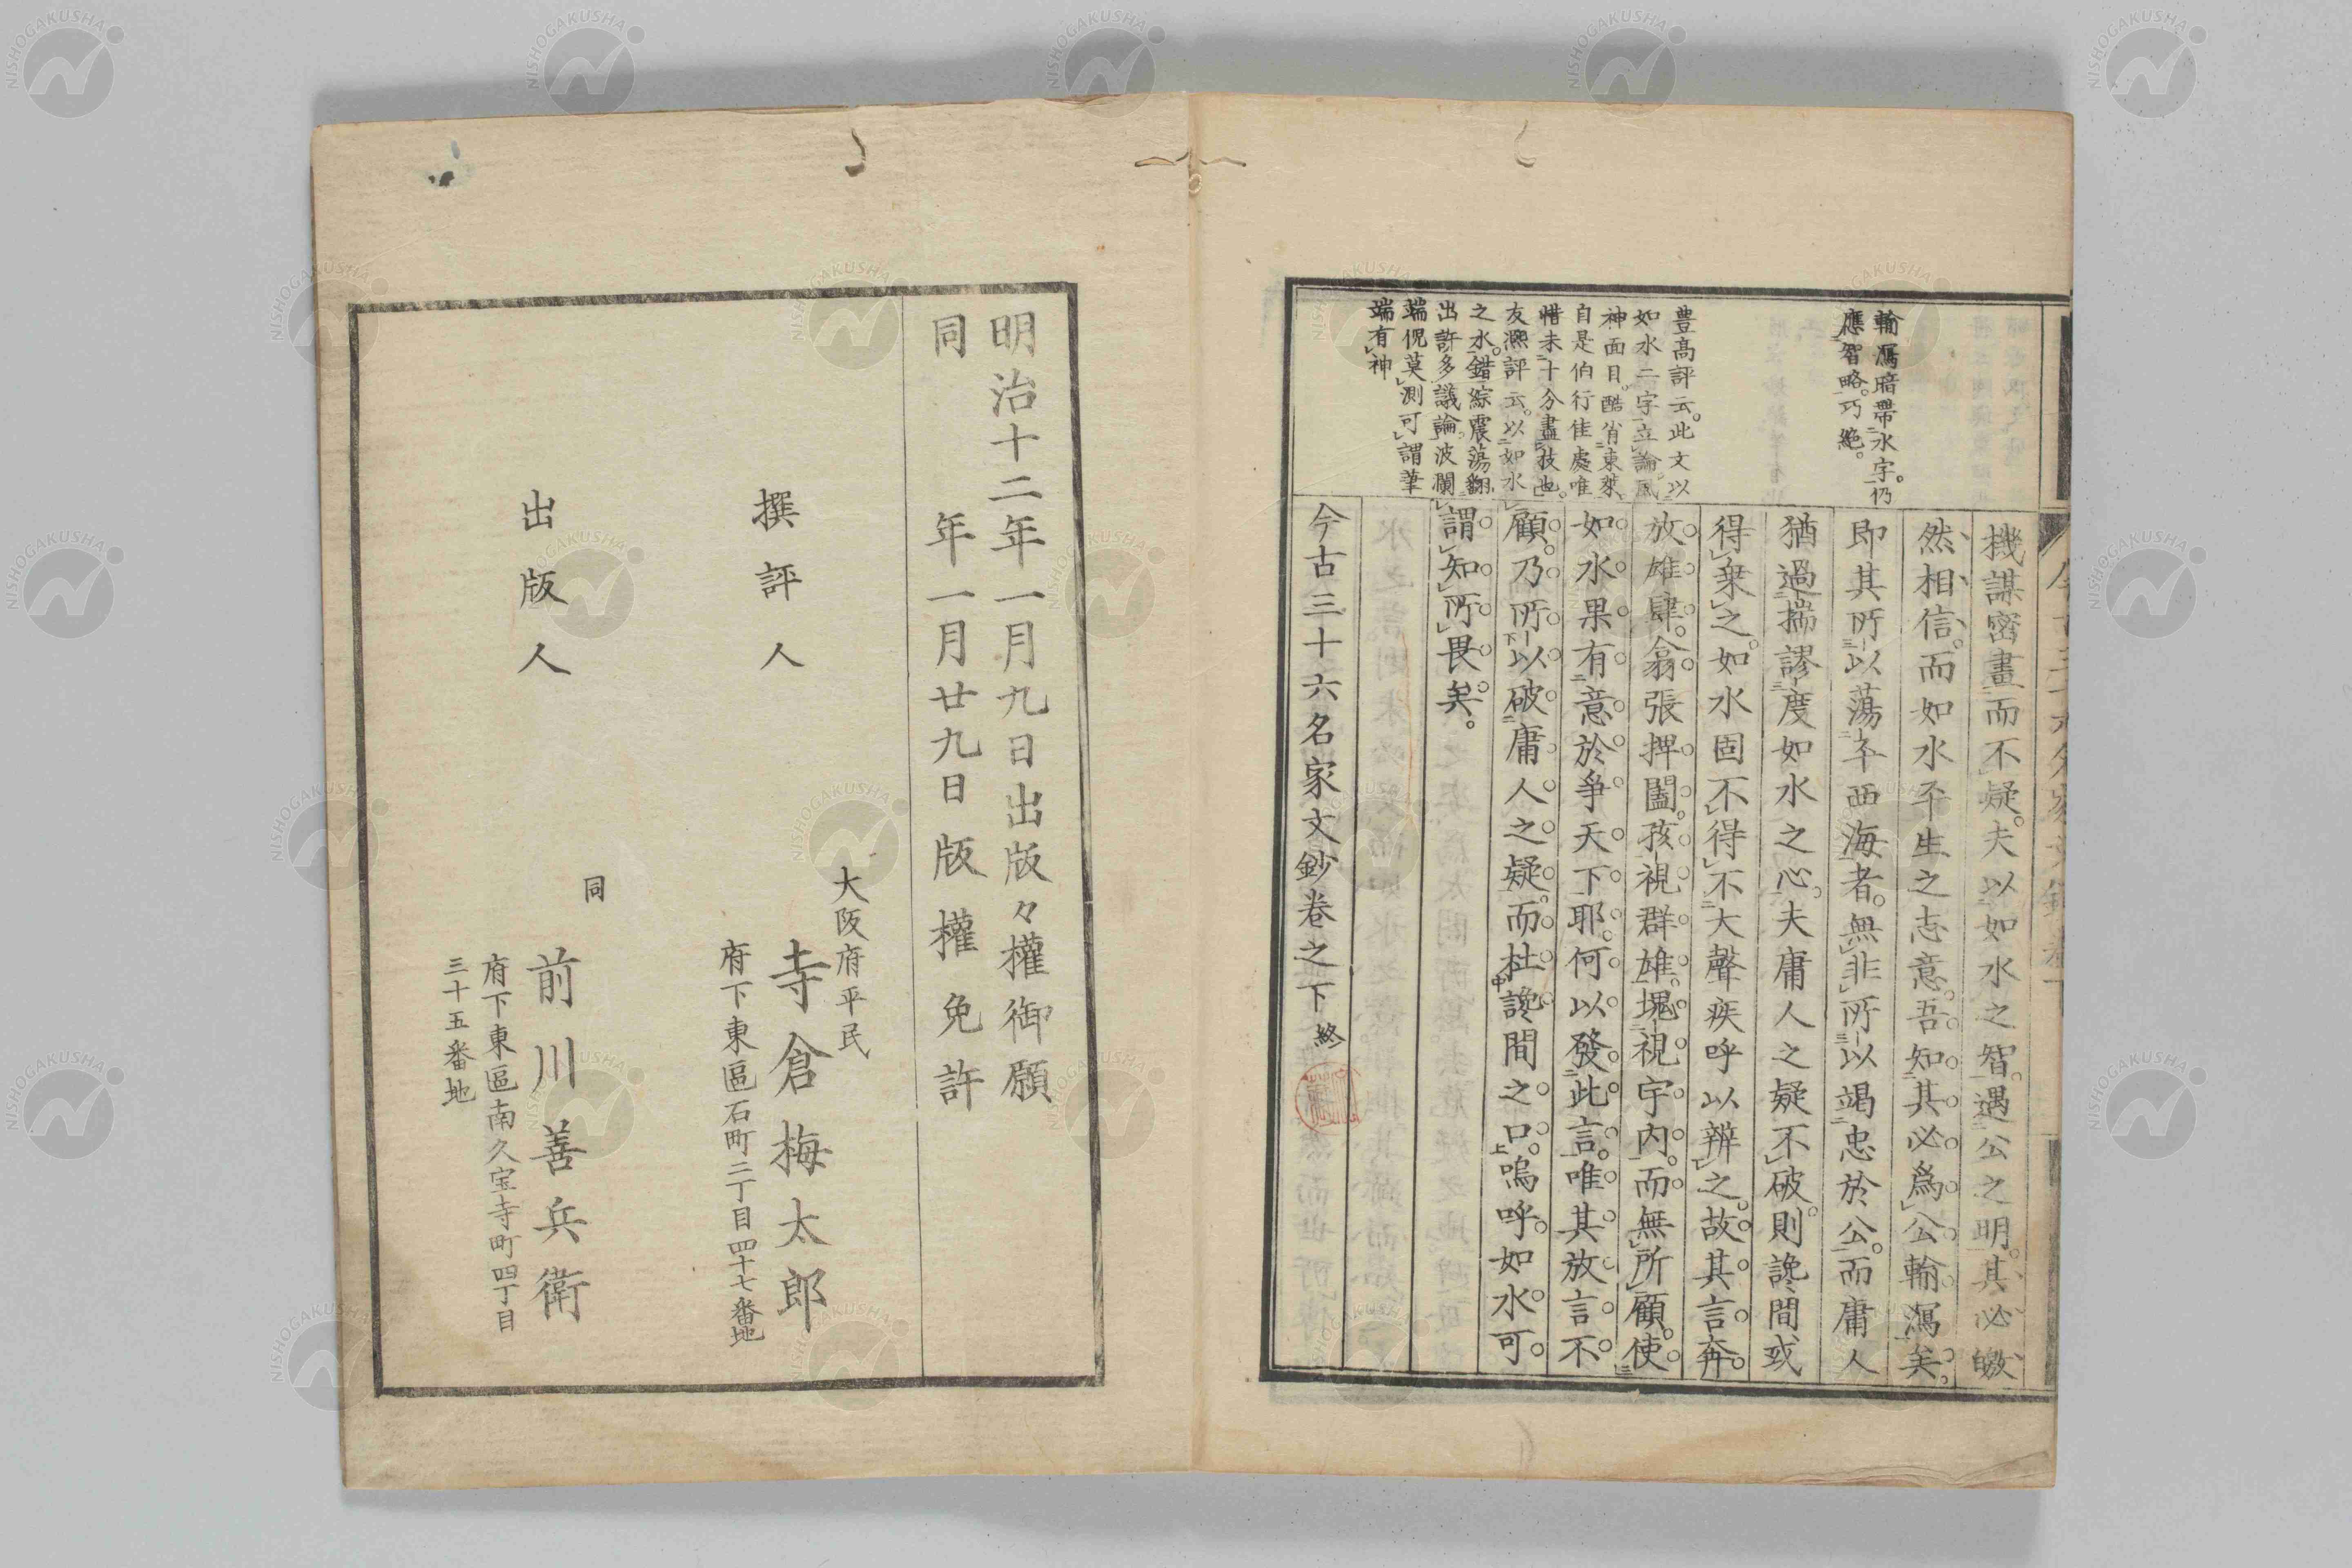 輸瀉暗帶水字。仍
應智略。巧絶。
豊高評云。此文以
如水二字立論。風
神面目。酷肖東萊、
自是伯行佳處唯
惜未十分盡技也。
友凞評云。以如水
之水。錯綜震蕩。翻
出許多議論。波瀾
端倪莫測可謂筆
端有神
機謀密畫而不疑。夫以如水之智。遇公之明。其必皦
然相信。而如水平生之志意。吾知其必爲公輸瀉矣。
即其所以蕩平西海者。無非所以竭忠於公。而庸人
猶過揣謬度如水之心。夫庸人之疑不破。則讒間或
得乗之。如水固不得不大聲疾呼以辨之。故其言奔
放雄肆。翕張捭闔。孩視群雄。塊視宇内。而無所顧。使
如水果有意於爭天下耶。何以發此言。唯其放言不
顧。乃所以破庸人之疑。而杜讒間之口。嗚呼。如水可
謂知所畏矣。
今古三十六名家文鈔卷之下 終
明治十二年一月九日出版々權御願
同 年一月廿九日版權免許
撰評人
大阪府平民
寺倉梅太郎
府下東區石町二丁目四十七番地
出版人
同
前川善兵衛
府下東區南久宝寺町四丁目
三十五番地
NISHOGAKUSHA